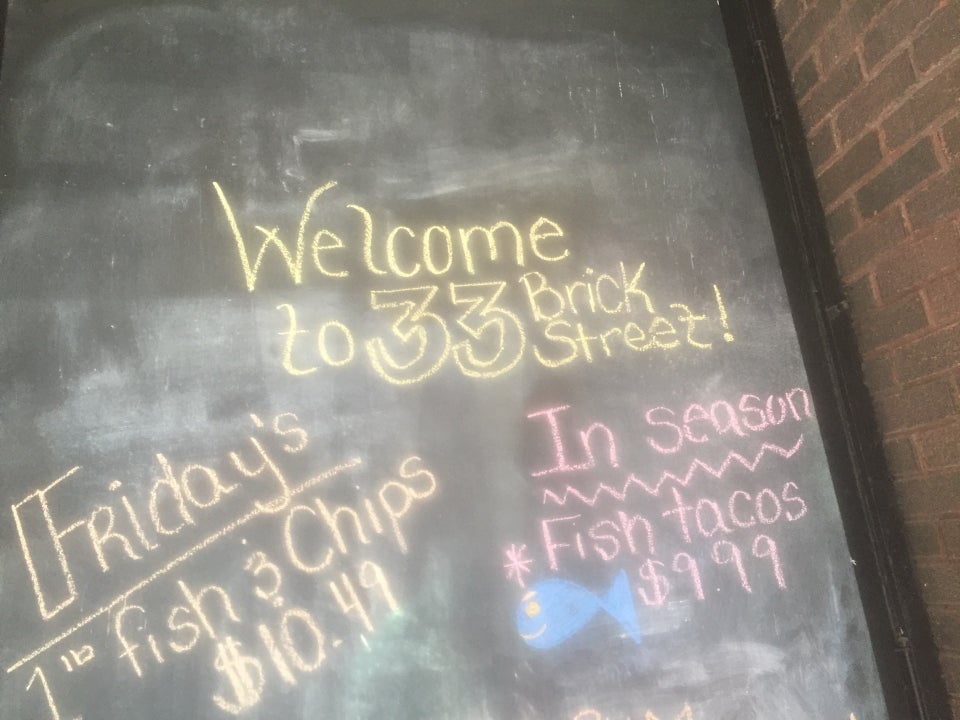 Welcome
to 33 Brick
Street!
Friday's
1 lb fish & Chips
$10.49
In season
* Fish tacos
$9.99